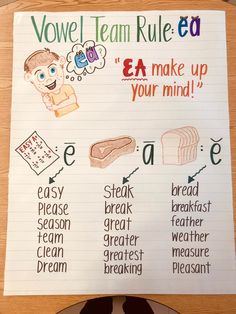 Vowel Team Rule: ea
ea?
"EA make up
your mind!"
EASY A!
: ē
: ā
: ĕ
easy Steak bread
Please break breakfast
Season great feather
team greater weather
Clean greatest measure
Dream breaking Pleasant